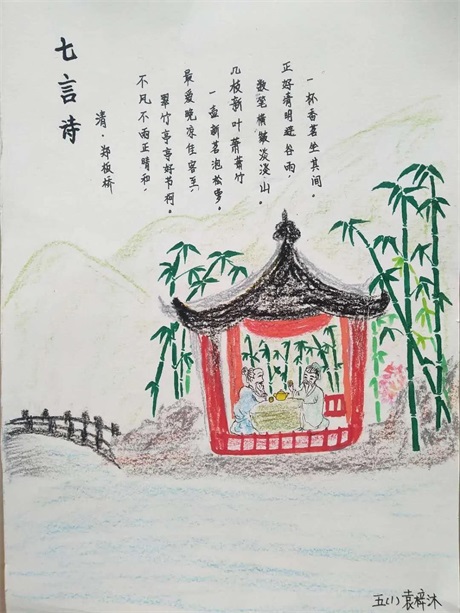 七言诗
清·郑板桥
不凡不雨正晴和，
翠竹亭亭好节柯。
最爱晚凉佳客至，
一壶新茗泡松萝。
几枝新叶萧萧竹，
数笔横皴淡淡山。
正好清明连谷雨，
一杯香茗坐其间。
五(1)袁梓沐